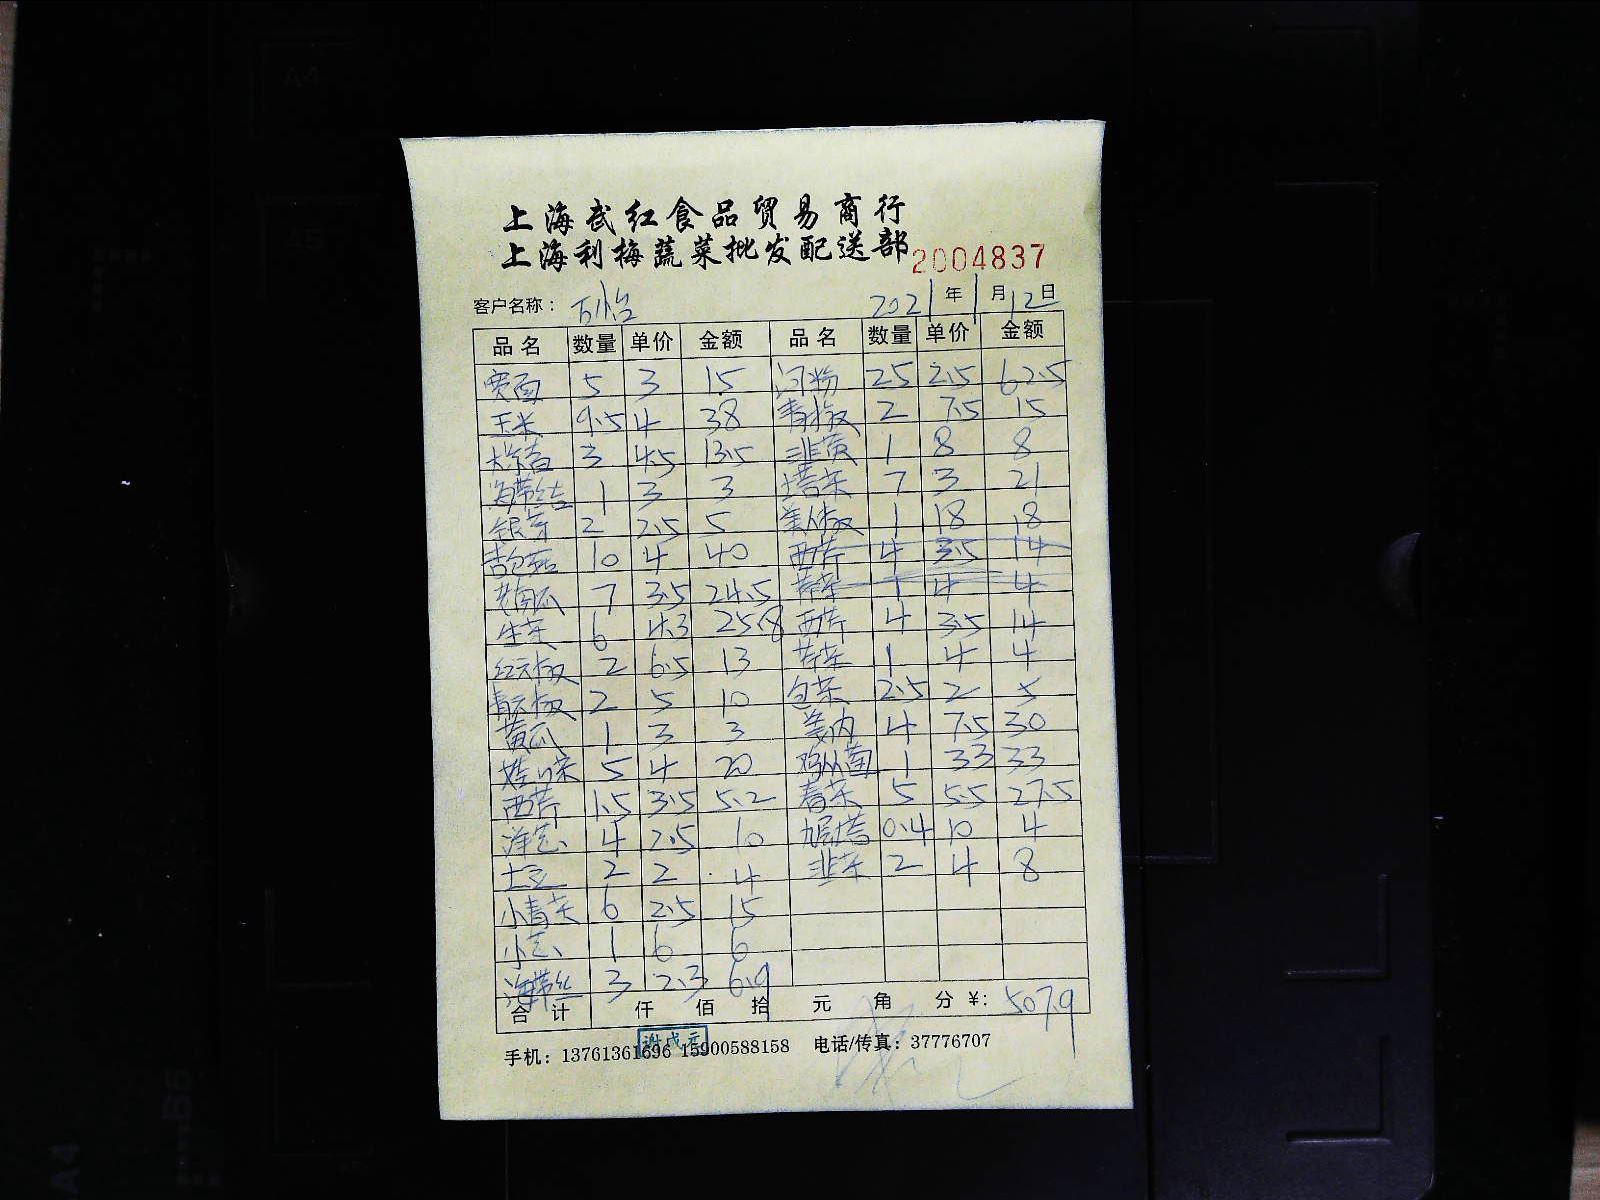 上海武红食品贸易商行
上海利梅蔬菜批发配送部 2004837
客户名称： 2021年1月12日
品名 数量 单价 金额 品名 数量 单价 金额
5 3 15 河粉 25 2.5 62.5
玉米 9.5 4 38 青椒 2 7.5 15
3 4.5 13.5 韭黄 1 8 8
海带结 1 3 3 塔菜 7 3 21
银芽 2 2.5 5 美人椒 1 18 18
杏包菇 10 4 40 西芹 4 3.5 14
老南瓜 7 3.5 24.5 芹菜 1 4 4
生菜 6 4.3 25.8 西芹 4 3.5 14
红元椒 2 6.5 13 芹菜 1 4 4
青元椒 2 5 10 包菜 2.5 2 5
黄瓜 1 3 3 姜肉 4 7.5 30
娃娃菜 5 4 20 鸡枞菌 1 33 33
西芹 1.5 3.5 5.2 春菜 5 5.5 27.5
洋葱 4 2.5 10 九层塔 0.4 10 4
土豆 2 2 4 韭菜 2 4 8
小青菜 6 2.5 15
小葱 1 6 6
海带丝 3 2.3 6.9
合计 仟 佰 拾 元 角 分 ¥: 507.9
谢成元
手机：13761361696 15900588158 电话/传真：37776707